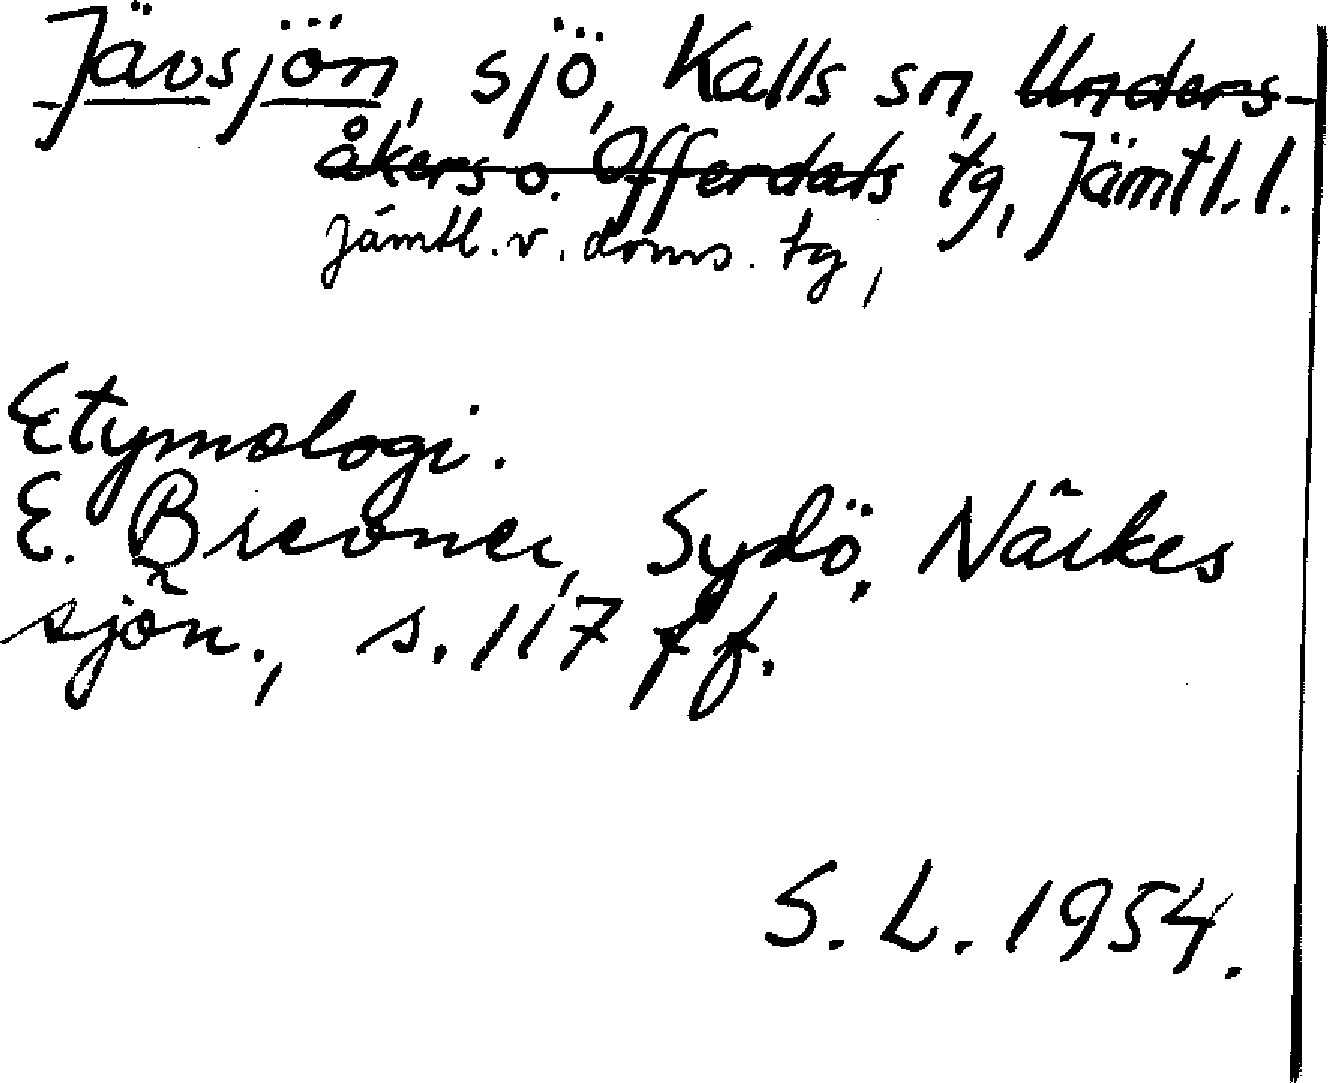 Jävsjön, sjö, Kalls sn, Unders-
åkers o. Offerdals tg, Jämtl. l.
Jämtl. v. doms. tg,
Etymologi.
E. Brevner, Sydö. Närkes
sjön., s. 117 ff.
S. L. 1954.